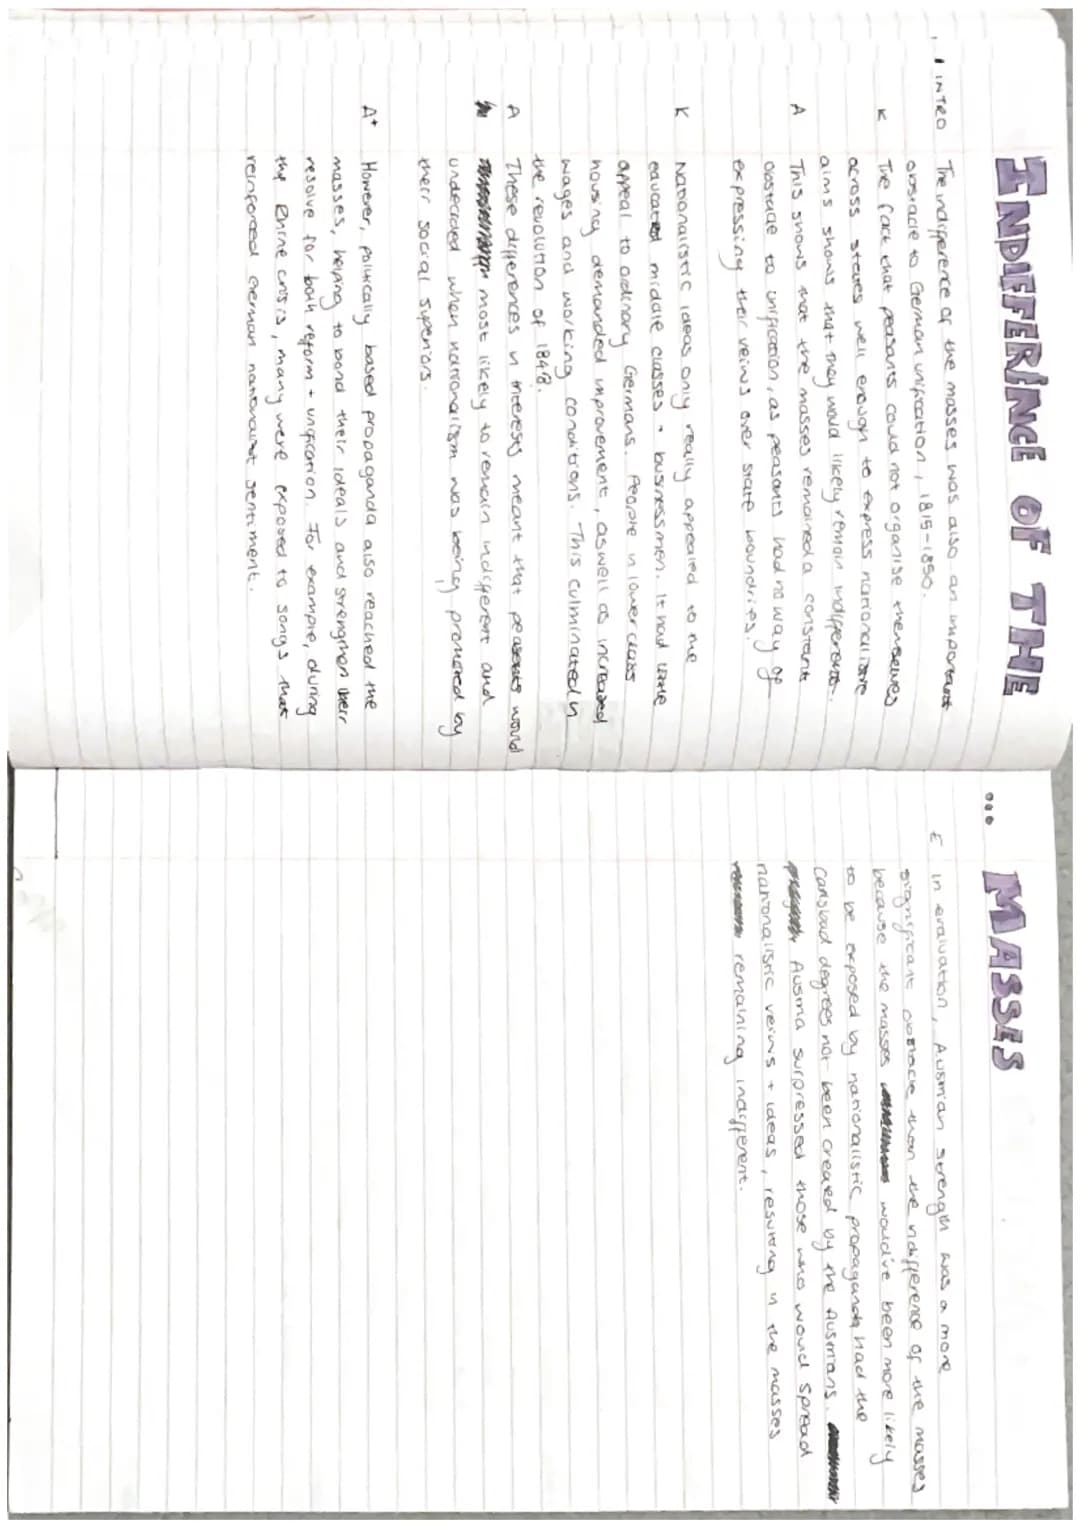 INDIFFERENCE OF THE
• INTRO The indifference of the masses was also an important
obstacle to German unification, 1815-1850.
K The fact that peasants could not organise themselves
across states well enough to express nationalistic
aims shows that they would likely remain indifferent.
A This shows that the masses remained a constant
obstacle to unification, as peasants had no way of
expressing their veiws over state boundries.
K Nationalistic ideas only really appealed to the
educated middle classes + businessmen. It had little
appeal to ordinary Germans. People in lower class
housing demanded improvement, aswell as increased
wages and working conditions. This culminated in
the revolution of 1848.
A These differences in interests meant that peasants would
most likely to remain indifferent and
undecided when nationalism was being promoted by
their social superiors.
A+ However, politically based propaganda also reached the
masses, helping to bond their ideals and strengthen their
resolve for both reform + unification. For example, during
the Rhine crisis, many were exposed to songs that
reinforced German nationalist sentiment.
... MASSES
E In evaluation, Austrian strength was a more
significant obstacle than the indifference of the masses
because the masses would've been more likely
to be exposed by nationalistic propaganda had the
Carlsbad degrees not been created by the Austrians.
Austria surpressed those who would spread
nationalistic veiws + ideas, resulting in the masses
remaining indifferent.